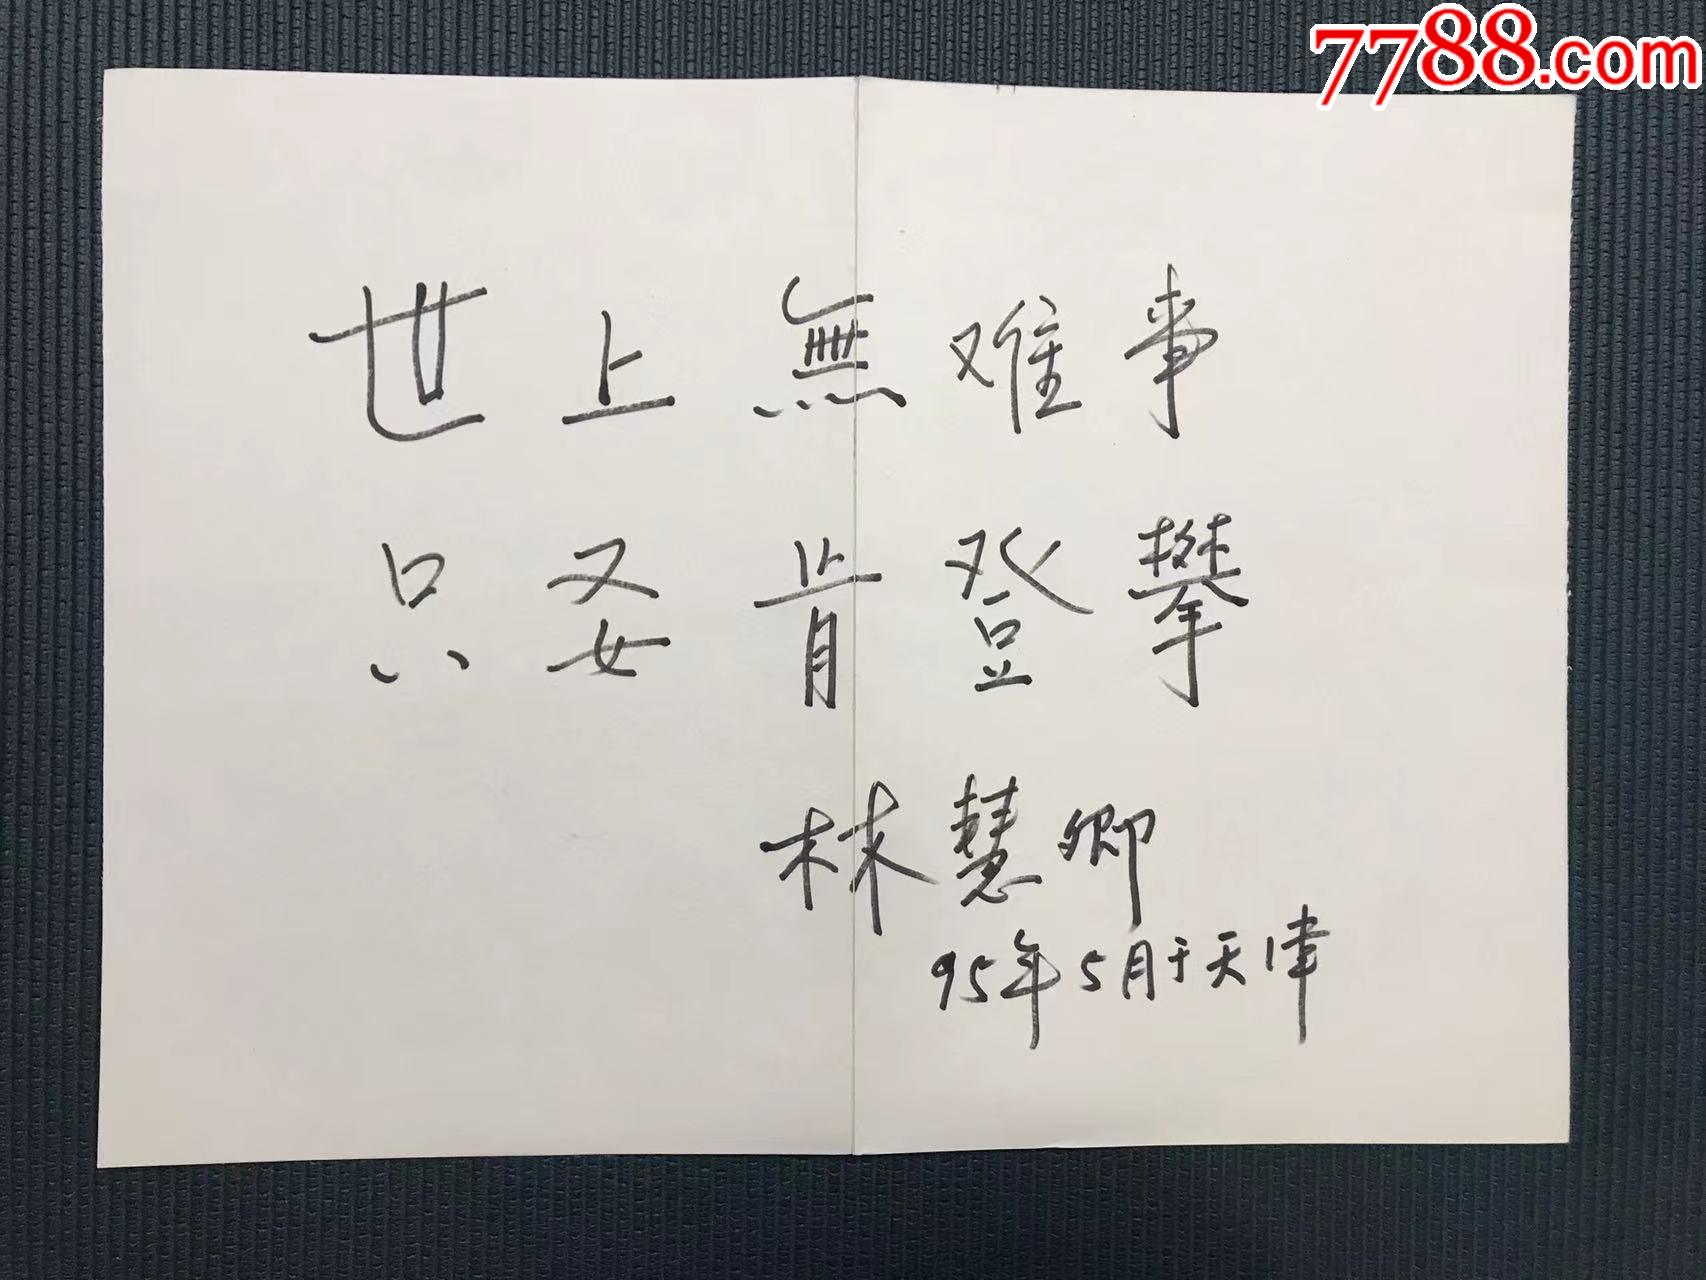 7788.com
世上無难事
只要肯登攀
林慧卿
95年5月于天津